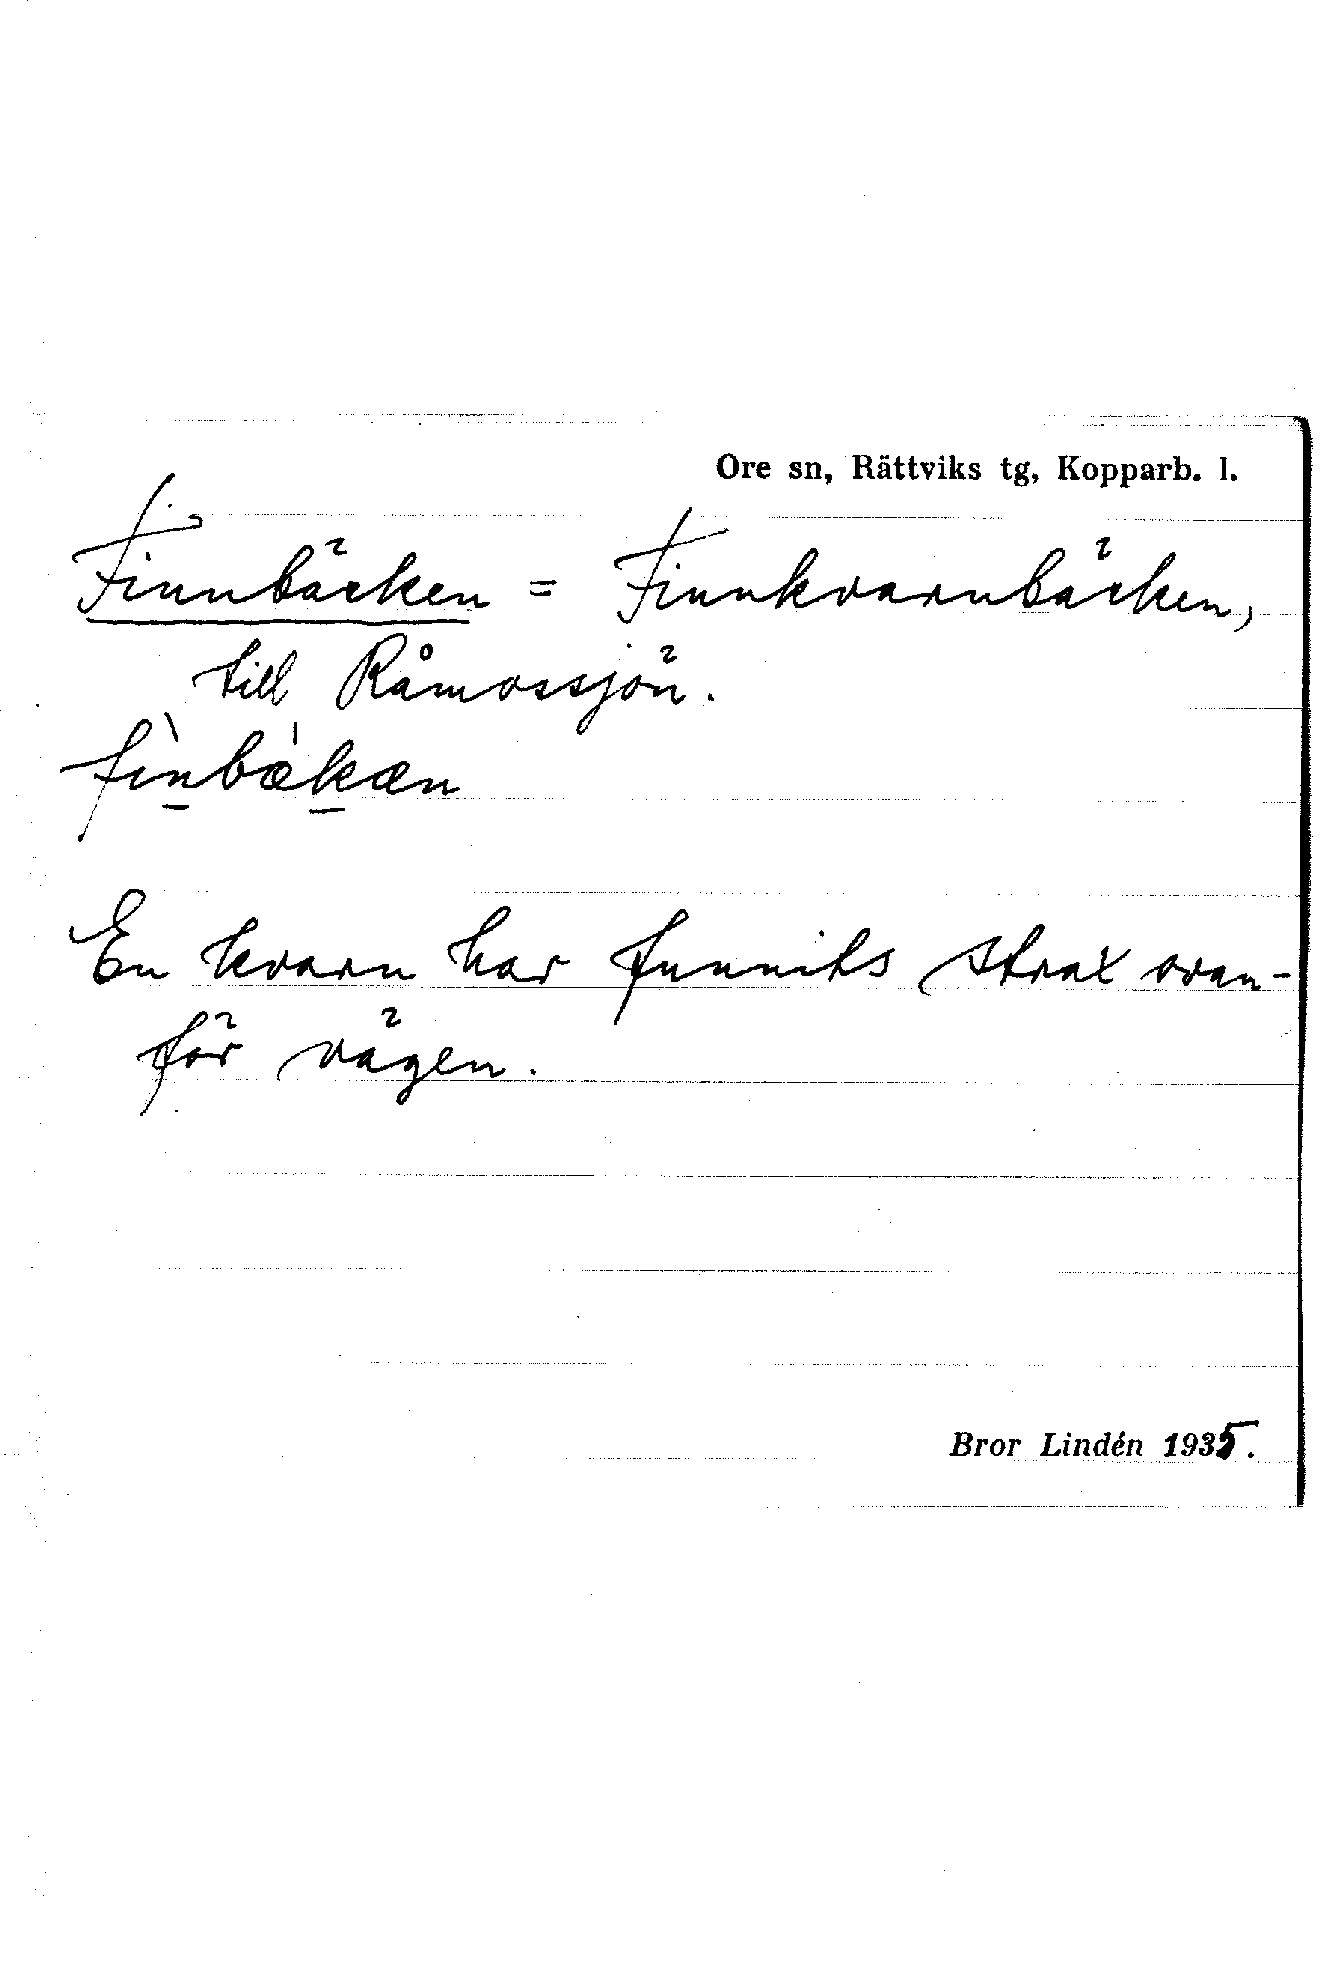 Ore sn, Rättviks tg, Kopparb. l.
Finnbäcken = Finnkvarnbäcken,
till Råmossjön.
fìn̠bæ̀k̠æn
En kvarn har funnits strax ovan-
för vägen.
Bror Lindén 1935.